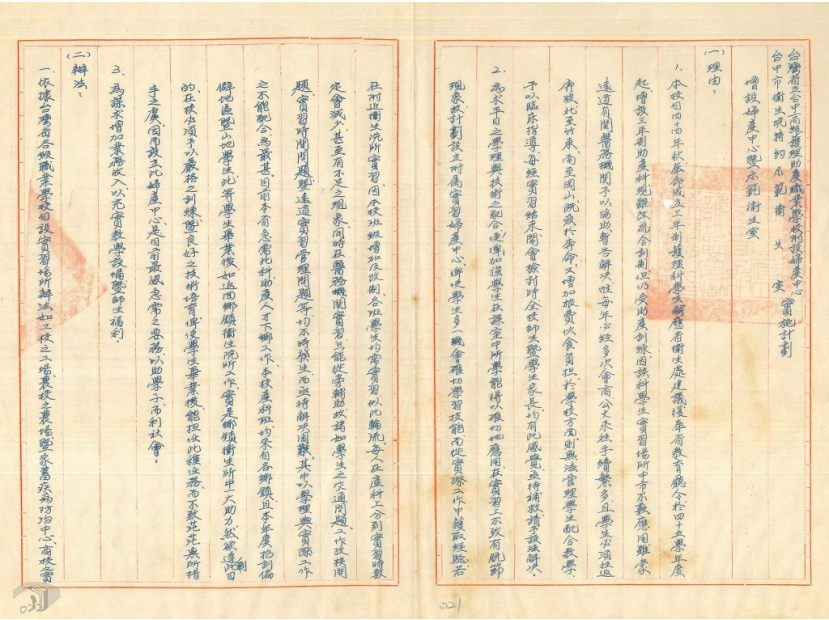 台灣省立台中高級護理助產職業學校附設婦產中心
台中市衛生院特約示範衛生室 實施計劃
增設婦產中心暨示範衛生室
(一)理由:
1、本校自四十四年秋奉命成立三年制護理科學生嗣應省衛生處建議復奉省教育廳令於四十五學年度
起增設三年制助產科現雖改為合訓制但仍受助產訓練因該科學生實習場所本市不敷應用雖蒙
遠道有關醫務機關予以協助暫告解決惟每年必經多次會商公文來往手續繁多且學生必須往返
奔波北至竹東、南至岡山既疲於奔命、又增加旅費伙食負担、於學校方面則無法管理學生配合教學、
予以臨床指導、每經實習結束開會檢討時全校師生暨學生家長均有此感覺亟待補救請予設法解決。
2、為求平日之學理與技術之配合使俾加深學生在課室中所學能得以確切地應用在實習上不致有脫節
現象故計劃設立附屬實習婦產中心、俾使學生多一機會確切學習技能而從實際工作中獲取經驗若
在附近衛生院所實習、因本校班級增加及改制各班學生均需實習、似此輪流每人在產科上分到實習時數
定會減少甚至有不足之現象、同時在醫務機關實習只能從旁輔助故諸如學生之交通問題、工作放棧問
題、實習時間問題暨遠道實習管理問題等、均不時發生而亟待解決困難、其中以學理與實際工作
之不能配合為最甚目前本省急需此科助產人才下鄉工作、本校產科班均來自各鄉鎮且本年度招訓偏
僻地區暨山地學生、此等學生畢業後、如返回鄉鎮衛生院所工作、實是鄉鎮衛生所中一大助力、然欲達此目
的、在校必須予以嚴格之訓練暨良好之技術培育、俾使學生畢業後、能担任此護任務而不致茫茫無所措
手之虞、因而設立此婦產中心是目前最感急需之要務以助學子而利社會。
3、為謀求增加業務收入以充實教學設備暨師生福利。
(二)辦法:
一、依據台灣省各級職業學校自設實習場所辦法、如工校之工場農校之農場暨家畜疾病防治中心、商校之實
021
022